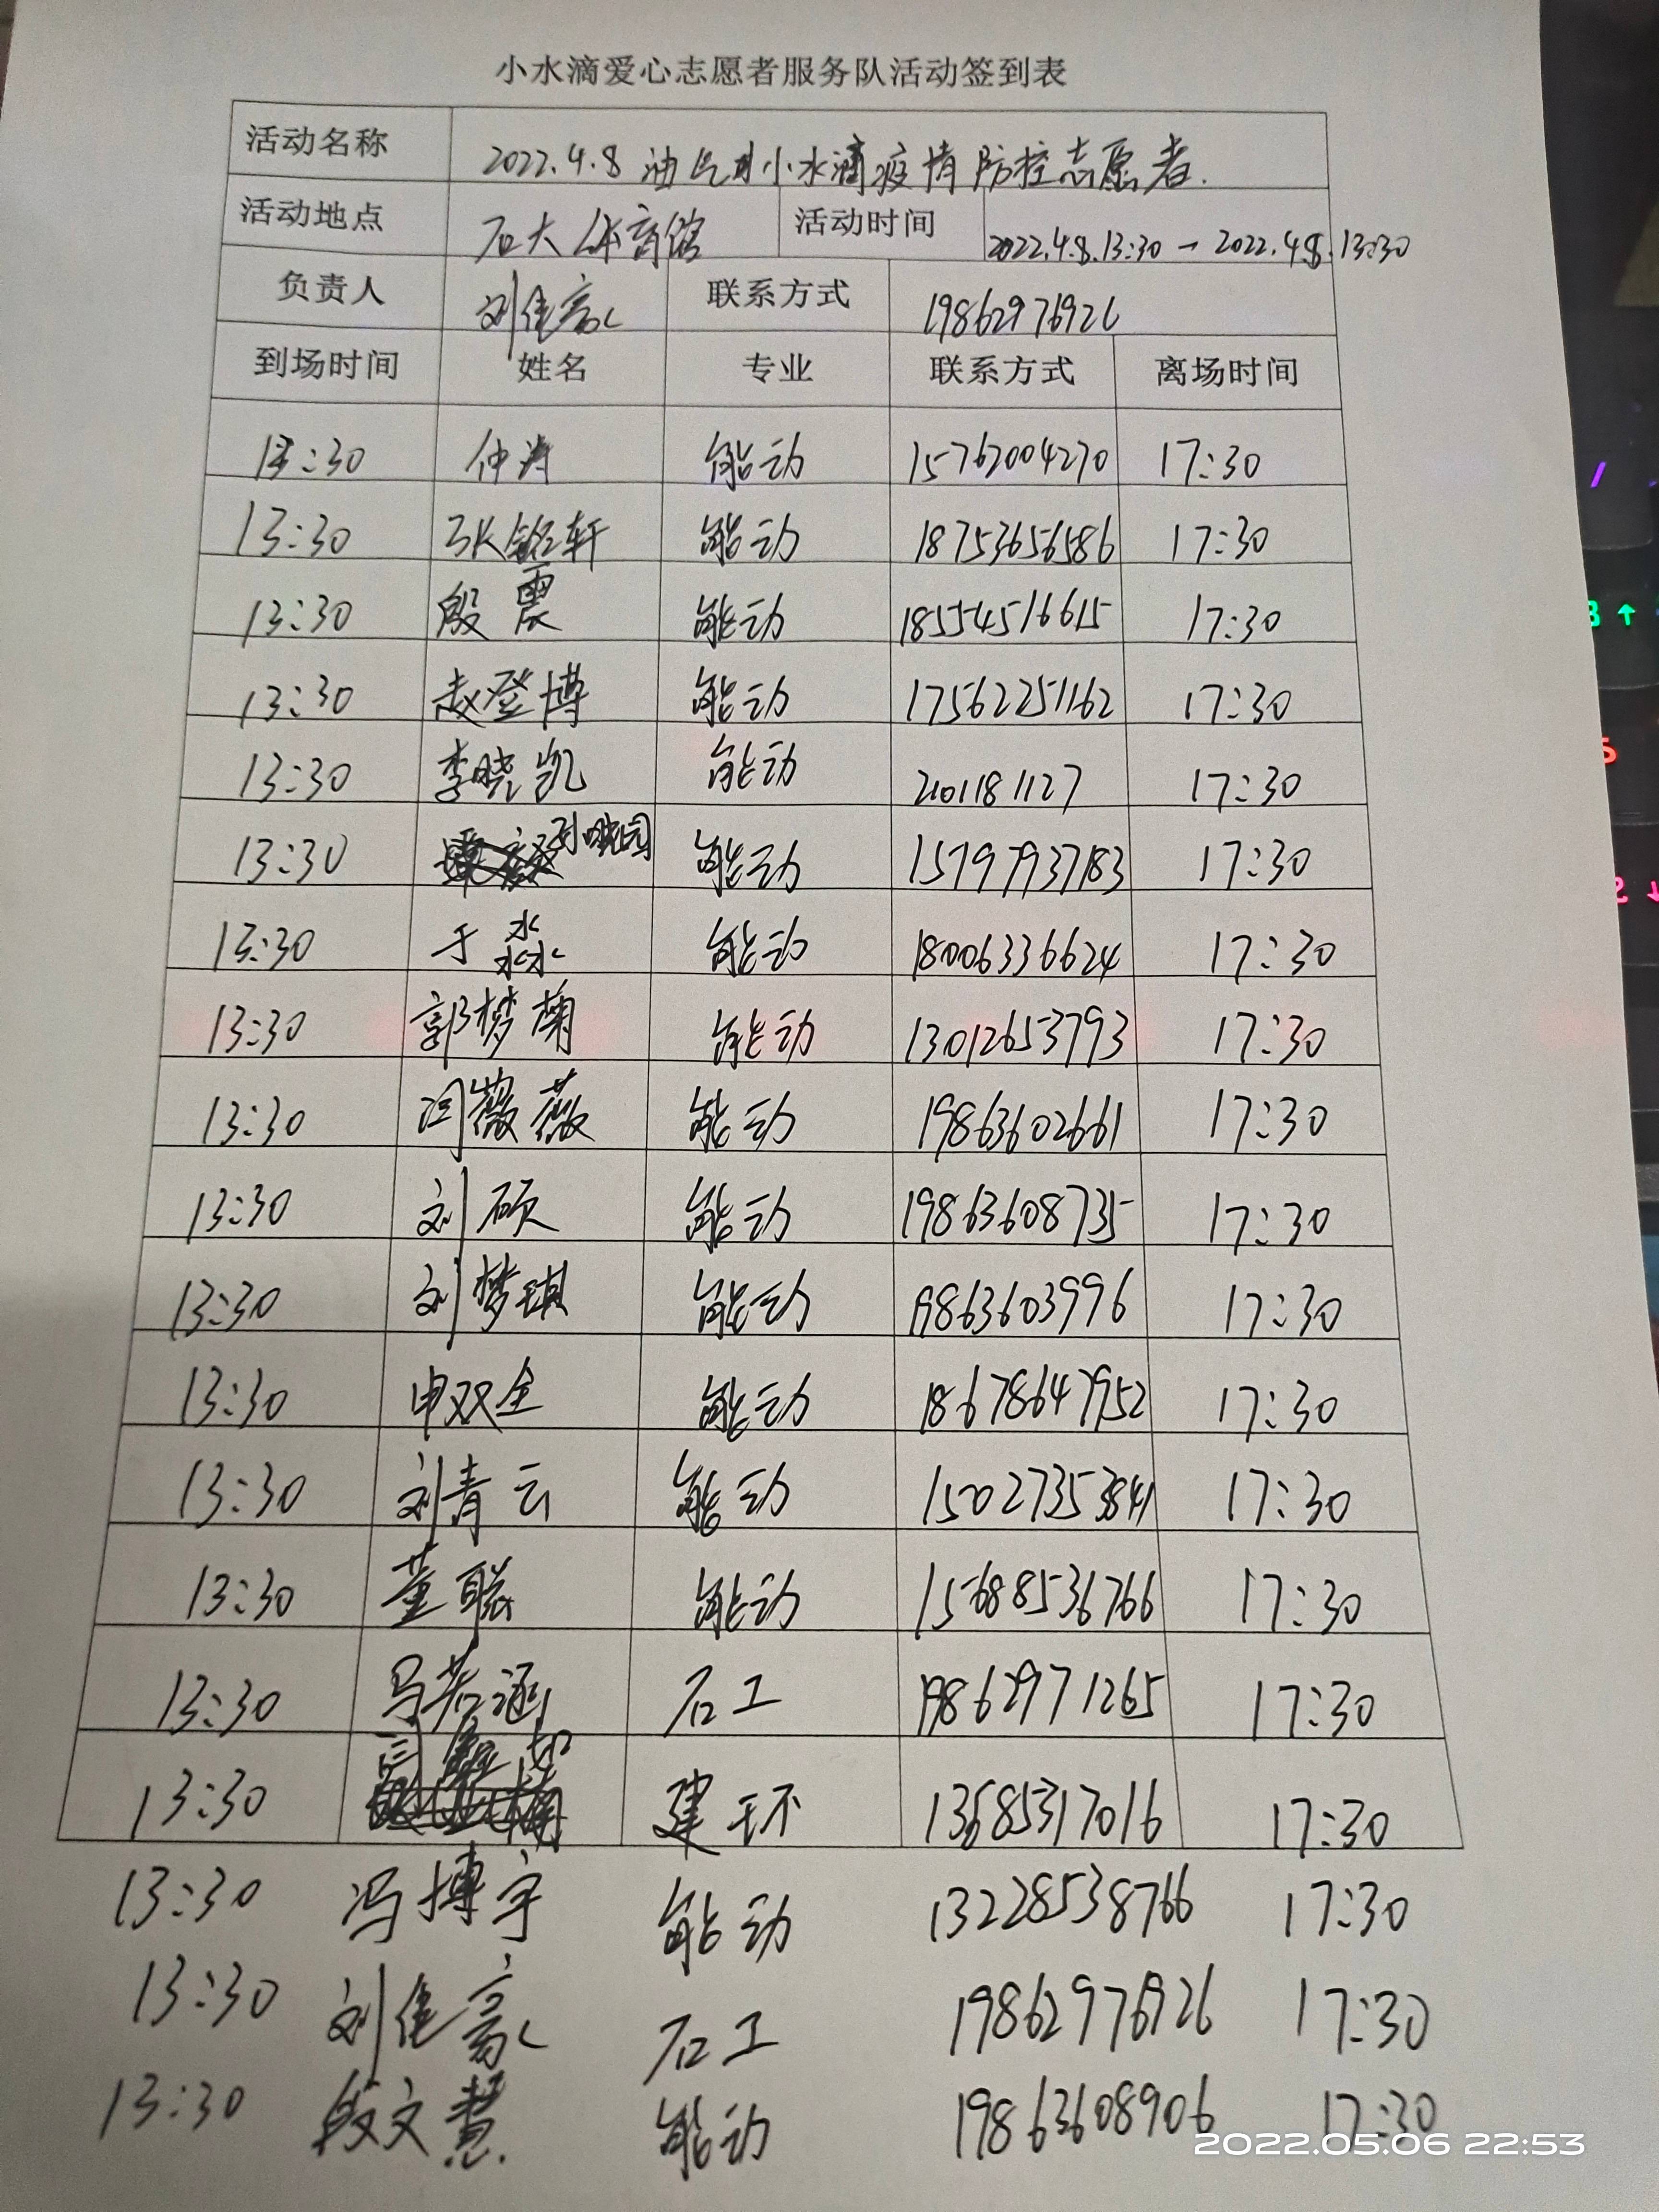 小水滴爱心志愿者服务队活动签到表
活动名称 2022.4.8 油气小水滴疫情防控志愿者.
活动地点 石大体育馆 活动时间 2022.4.8.13:30 — 2022.4.8.13:30
负责人 刘佳豪 联系方式 19862976926
到场时间 姓名 专业 联系方式 离场时间
13:30 仲涛 能动 15762004270 17:30
13:30 张铭轩 能动 18753656586 17:30
13:30 殷震 能动 18554516615 17:30
13:30 赵登博 能动 17562251162 17:30
13:30 李晓凯 能动 2101181127 17:30
13:30 孙晓园 能动 15797937183 17:30
13:30 于淼 能动 18006336624 17:30
13:30 郭梦菊 能动 13012653793 17:30
13:30 闫薇薇 能动 19863602661 17:30
13:30 刘硕 能动 19863608735 17:30
13:30 刘梦琪 能动 19863603996 17:30
13:30 申双全 能动 18678647952 17:30
13:30 刘青云 能动 15027353841 17:30
13:30 董聪 能动 15688536766 17:30
13:30 马若涵 石工 19862971265 17:30
13:30 建环 13685317016 17:30
13:30 冯博宇 能动 13228538766 17:30
13:30 刘佳豪 石工 19862976926 17:30
13:30 段文慧 能动 19863608906 17:30
2022.05.06 22:53